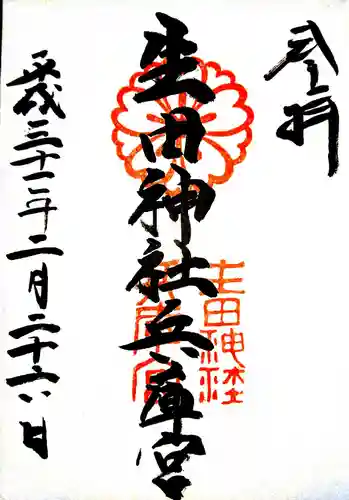 奉拝
生田神社兵庫宮
平成三十二年二月二十六日
生田神社
兵庫宮